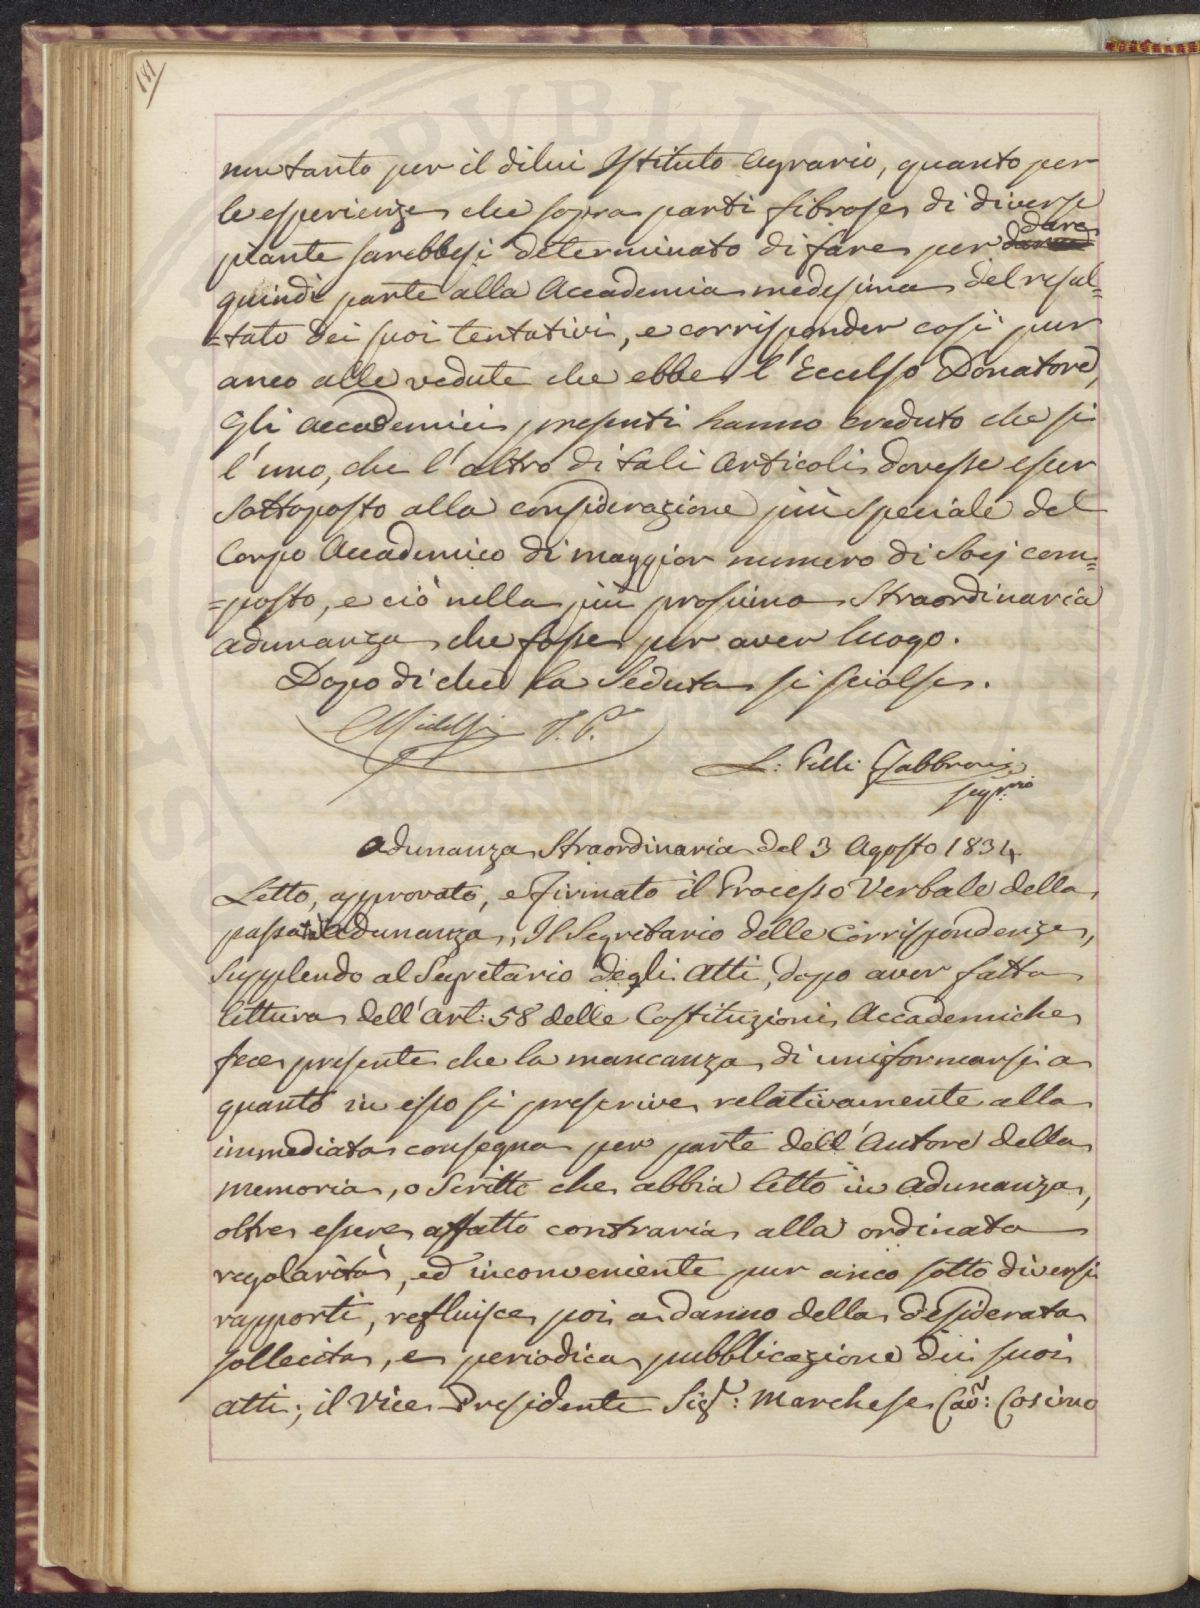 181
non tanto per il dilui Istituto Agrario, quanto per
le esperienze che sopra parti fibrose di diverse
piante sarebbesi determinato di fare per dare
quindi parte alla Accademia medesima del resul=
=tato dei suoi tentativi, e corrisponder così pur
anco alle vedute che ebbe l'Eccelso Donatore,
Gli Accademici presenti hanno creduto che sì
l'uno, che l'altro di tali Articoli dovesse esser
sottoposto alla considerazione più speciale del
Corpo Accademico di maggior numero di Socj com=
=posto, e ciò nella più prossima Straordinaria
adunanza che fosse per aver luogo.
Dopo di che la Seduta si sciolse.
C. Ridolfi V. P.
L: Pelli Fabbroni
Segr.rio
Adunanza Straordinaria del 3 Agosto 1834
Letto, approvato, e Firmato il Processo Verbale della
passata Adunanza, Il Segretario delle Corrispondenze,
supplendo al Segretario degli Atti, dopo aver fatta
lettura dell'Art: 58 delle Costituzioni Accademiche
fece presente che la mancanza di uniformarsi a
quanto in esso si prescrive relativamente alla
immediata consegna per parte dell'Autore della
Memoria, o Scritti che abbia letto in Adunanza,
oltre essere affatto contraria alla ordinata
regolarità, ed inconveniente pur anco sotto diversi
rapporti, refluisce poi a danno della desiderata
sollecita, e periodica pubblicazione dei suoi
atti; il Vice Presidente Sigr: Marchese Cav: Cosimo